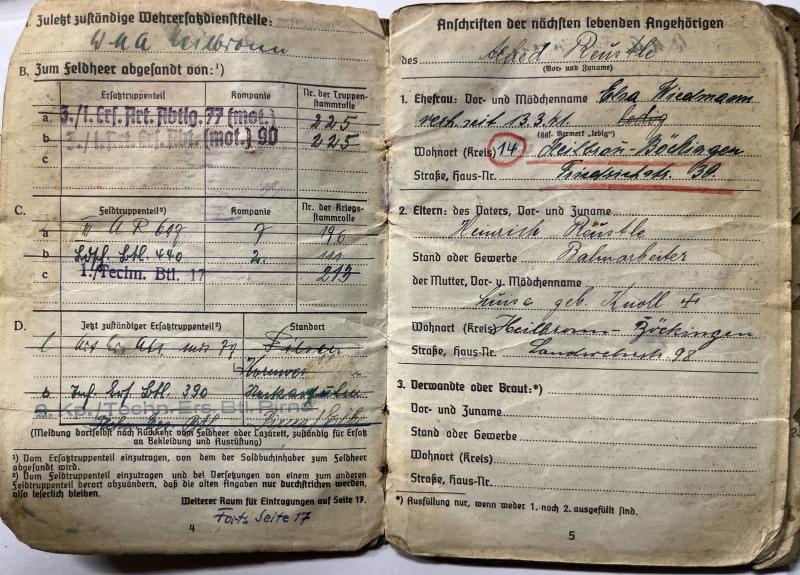 . Zuletzt zuständige Wehrersatzdienststelle:
Heilbronn
B. Zum Feldheer abgesandt von:¹)
Ersatztruppenteil Kompanie Nr. der Truppenstammrolle
a 3./l. Ers. Art. Abtlg. 77 (mot.) 225
b 3./l. Art. Ers. Abt. (mot.) 90 225
c
C. Feldtruppenteil²) Kompanie Nr. der Kriegsstammrolle
a III A R 617 7 196
b Btl. 440 2.
c 1./Techn. Btl. 17 213
D. Jetzt zuständiger Ersatztruppenteil²) Standort
77 Pilsen
b Inf. Ers. Btl. 390 Neckarsulm
Techn. Ers. Btl. Pirna
Pirna/Elbe
(Meldung dortselbst nach Rückkehr vom Feldheer oder Lazarett, zuständig für Ersatz
an Bekleidung und Ausrüstung)
¹) Vom Ersatztruppenteil einzutragen, von dem der Soldbuchinhaber zum Feldheer
abgesandt wird.
²) Vom Feldtruppenteil einzutragen und bei Versetzungen von einem zum anderen
Feldtruppenteil derart abzuändern, daß die alten Angaben nur durchstrichen werden,
also leserlich bleiben.
Weiterer Raum für Eintragungen auf Seite 17.
Forts Seite 17
4
Anschriften der nächsten lebenden Angehörigen
des Alfred Reustle
(Vor- und Zuname)
1. Ehefrau: Vor- und Mädchenname Elsa Wiedmann
verh. seit 13.3.41 ledig
(ggf. Vermerk „ledig")
Wohnort (Kreis) 14 Heilbronn-Böckingen
Straße, Haus-Nr. Friedrichstr. 30
2. Eltern: des Vaters, Vor- und Zuname
Heinrich Reustle
Stand oder Gewerbe Bahnarbeiter
der Mutter, Vor- u. Mädchenname
Luise geb. Knoll +
Wohnort (Kreis) Heilbronn-Böckingen
Straße, Haus-Nr. Landwehrstr. 98
3. Verwandte oder Braut:*)
Vor- und Zuname
Stand oder Gewerbe
Wohnort (Kreis)
Straße, Haus-Nr.
*) Ausfüllung nur, wenn weder 1. noch 2. ausgefüllt sind.
5